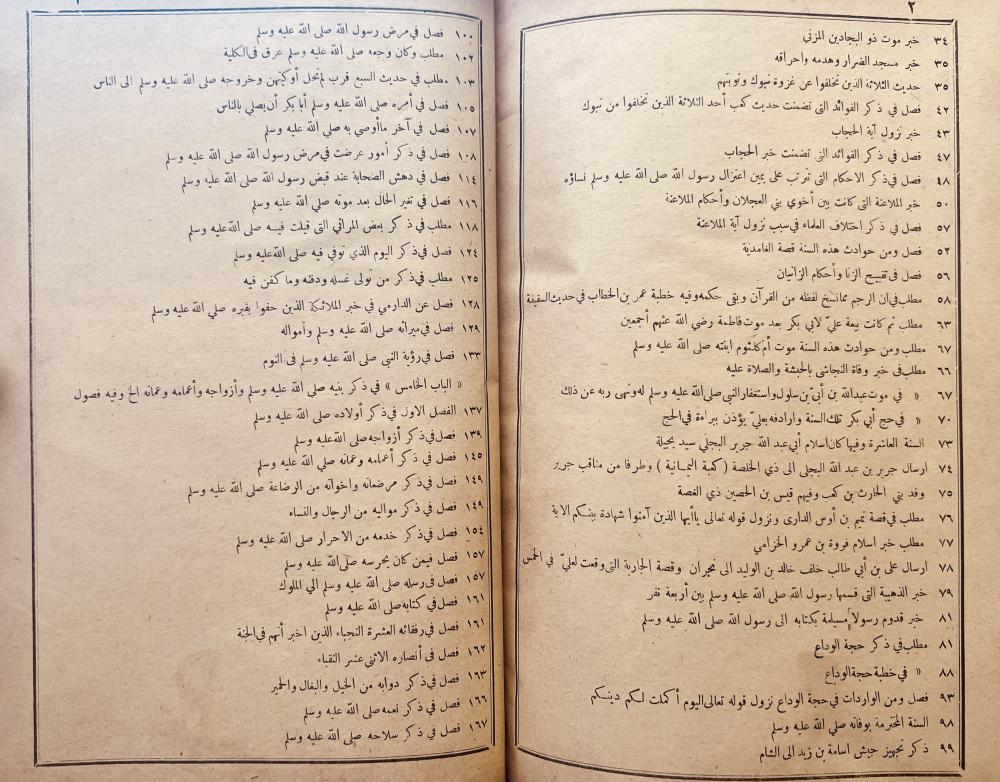 ٢
٣٤ خبر موت ذو البجادين المزني
٣٥ خبر مسجد الضرار وهدمه واحراقه
٣٥ حديث الثلاثة الذين تخلفوا عن غزوة تبوك وتوبتهم
٤٢ فصل في ذكر الفوائد التي تضمنت حديث كعب أحد الثلاثة الذين تخلفوا من تبوك
٤٣ خبر نزول آية الحجاب
٤٧ فصل في ذكر الفوائد التي تضمنت خبر الحجاب
٤٨ فصل في ذكر الاحكام التي ترتب على يمين اعتزال رسول الله صلى الله عليه وسلم نساؤه
٥٠ خبر الملاعنة التي كانت بين أخوي بني العجلان وأحكام الملاعنة
٥٧ فصل في ذكر اختلاف العلماء في سبب نزول آية الملاعنة
٥٢ فصل ومن حوادث هذه السنة قصة الغامدية
٥٦ فصل في تقبيح الزنا وأحكام الزانيان
٥٨ مطلب في ان الرجم مما نسخ لفظه من القرآن وبقى حكمه وفيه خطبة عمر بن الخطاب في حديث السقيفة
٦٣ مطلب ثم كانت بيعة عليّ لابي بكر بعد موت فاطمة رضي الله عنهم أجمعين
٦٧ مطلب ومن حوادث هذه السنة موت أم كلثوم ابنته صلى الله عليه وسلم
٦٦ مطلب في خبر وفاة النجاشي بالحبشة والصلاة عليه
٦٧ « في موت عبد الله بن أبي بن سلول واستغفار النبي صلى الله عليه وسلم له ونهى ربه عن ذلك
٧٠ « في حج أبي بكر تلك السنة وارادفه بعليّ يؤذن ببراءة في الحج
٧٣ السنة العاشرة وفيها كان اسلام أبي عبد الله جرير البجلي سيد بجيلة
٧٤ ارسال جرير بن عبد الله البجلى الى ذي الخلصة ( كعبة اليمانية ) وطرفا من مناقب جرير
٧٥ وفد بني الحارث بن كعب وفيهم قيس بن الحصين ذي الغصة
٧٦ مطلب في قصة تميم بن أوس الدارى ونزول قوله تعالى ياأيها الذين آمنوا شهادة بينكم الاية
٧٧ مطلب خبر اسلام فروة بن عمرو الخزامي
٧٨ ارسال على بن أبي طالب خلف خالد بن الوليد الى نجران وقصة الجارية التي وقعت لعليّ في الخمس
٧٩ خبر الذهيبة التي قسمها رسول الله صلى الله عليه وسلم بين أربعة نفر
٨١ خبر قدوم رسولا مسيلمة بكتابه الى رسول الله صلى الله عليه وسلم
٨١ مطلب في ذكر حجة الوداع
٨٨ « في خطبة حجة الوداع
٩٣ فصل ومن الواردات في حجة الوداع نزول قوله تعالى اليوم أكملت لكم دينكم
٩٨ السنة المخترمة بوفاته صلى الله عليه وسلم
٩٩ ذكر تجهيز جيش اسامة بن زيد الى الشام
١٠٠ فصل في مرض رسول الله صلى الله عليه وسلم
١٠٢ مطلب وكان وجعه صلى الله عليه وسلم عرق في الكلية
١٠٣ مطلب في حديث السبع قرب لم تحل أوكيتهن وخروجه صلى الله عليه وسلم الى الناس
١٠٥ فصل في أمره صلى الله عليه وسلم أبا بكر أن يصلي بالناس
١٠٧ فصل في آخر ماأوصى به صلى الله عليه وسلم
١٠٨ فصل في ذكر أمور عرضت في مرض رسول الله صلى الله عليه وسلم
١١٤ فصل في دهش الصحابة عند قبض رسول الله صلى الله عليه وسلم
١١٦ فصل في تغير الحال بعد موته صلى الله عليه وسلم
١١٨ مطلب في ذكر بعض المراثي التي قيلت فيه صلى الله عليه وسلم
١٢٤ فصل في ذكر اليوم الذي توفي فيه صلى الله عليه وسلم
١٢٥ مطلب في ذكر من تولى غسله ودفنه وما كفن فيه
١٢٨ فصل عن الدارمي في خبر الملائكة الذين حفوا بقبره صلى الله عليه وسلم
١٢٩ فصل في ميراثه صلى الله عليه وسلم وأمواله
١٣٣ فصل في رؤية النبي صلى الله عليه وسلم في النوم
« الباب الخامس » في ذكر بنيه صلى الله عليه وسلم وأزواجه وأعمامه وعماته الخ وفيه فصول
١٣٧ الفصل الاول في ذكر أولاده صلى الله عليه وسلم
١٣٩ فصل في ذكر أزواجه صلى الله عليه وسلم
١٤٥ فصل في ذكر أعمامه وعماته صلى الله عليه وسلم
١٤٩ فصل في ذكر مرضعاته واخواته من الرضاعة صلى الله عليه وسلم
١٤٩ فصل في ذكر مواليه من الرجال والنساء
١٥٤ فصل في ذكر خدمه من الاحرار صلى الله عليه وسلم
١٥٧ فصل فيمن كان يحرسه صلى الله عليه وسلم
١٥٧ فصل في رسله صلى الله عليه وسلم الي الملوك
١٦١ فصل في كتابه صلى الله عليه وسلم
١٦١ فصل في رفقائه العشرة النجباء الذين اخبر أنهم في الجنة
١٦٢ فصل في أنصاره الاثني عشر النقباء
١٦٣ فصل في ذكر دوابه من الخيل والبغال والحمير
١٦٦ فصل في ذكر نعمه صلى الله عليه وسلم
١٦٧ فصل في ذكر سلاحه صلى الله عليه وسلم